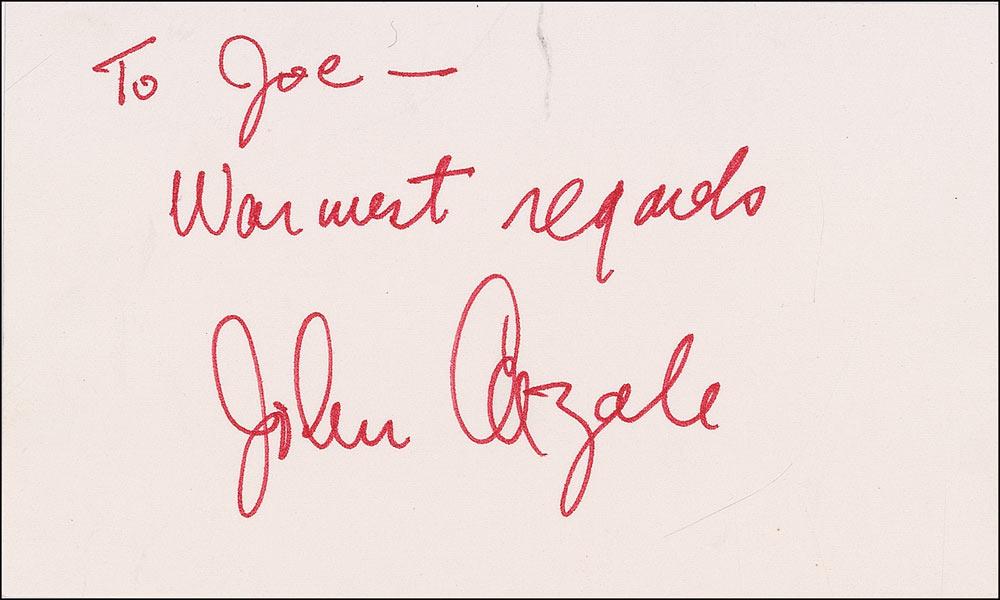 To Joe —
Warmest regards
John Cazale